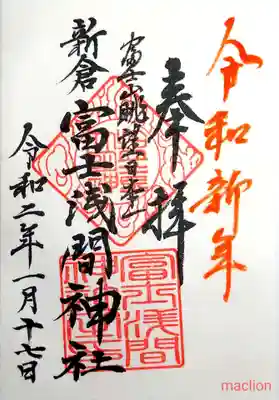 令和新年
奉拝
富士山眺望日本一
新倉
富士浅間神社
富士浅間
神社
令和二年一月十七日
maclion